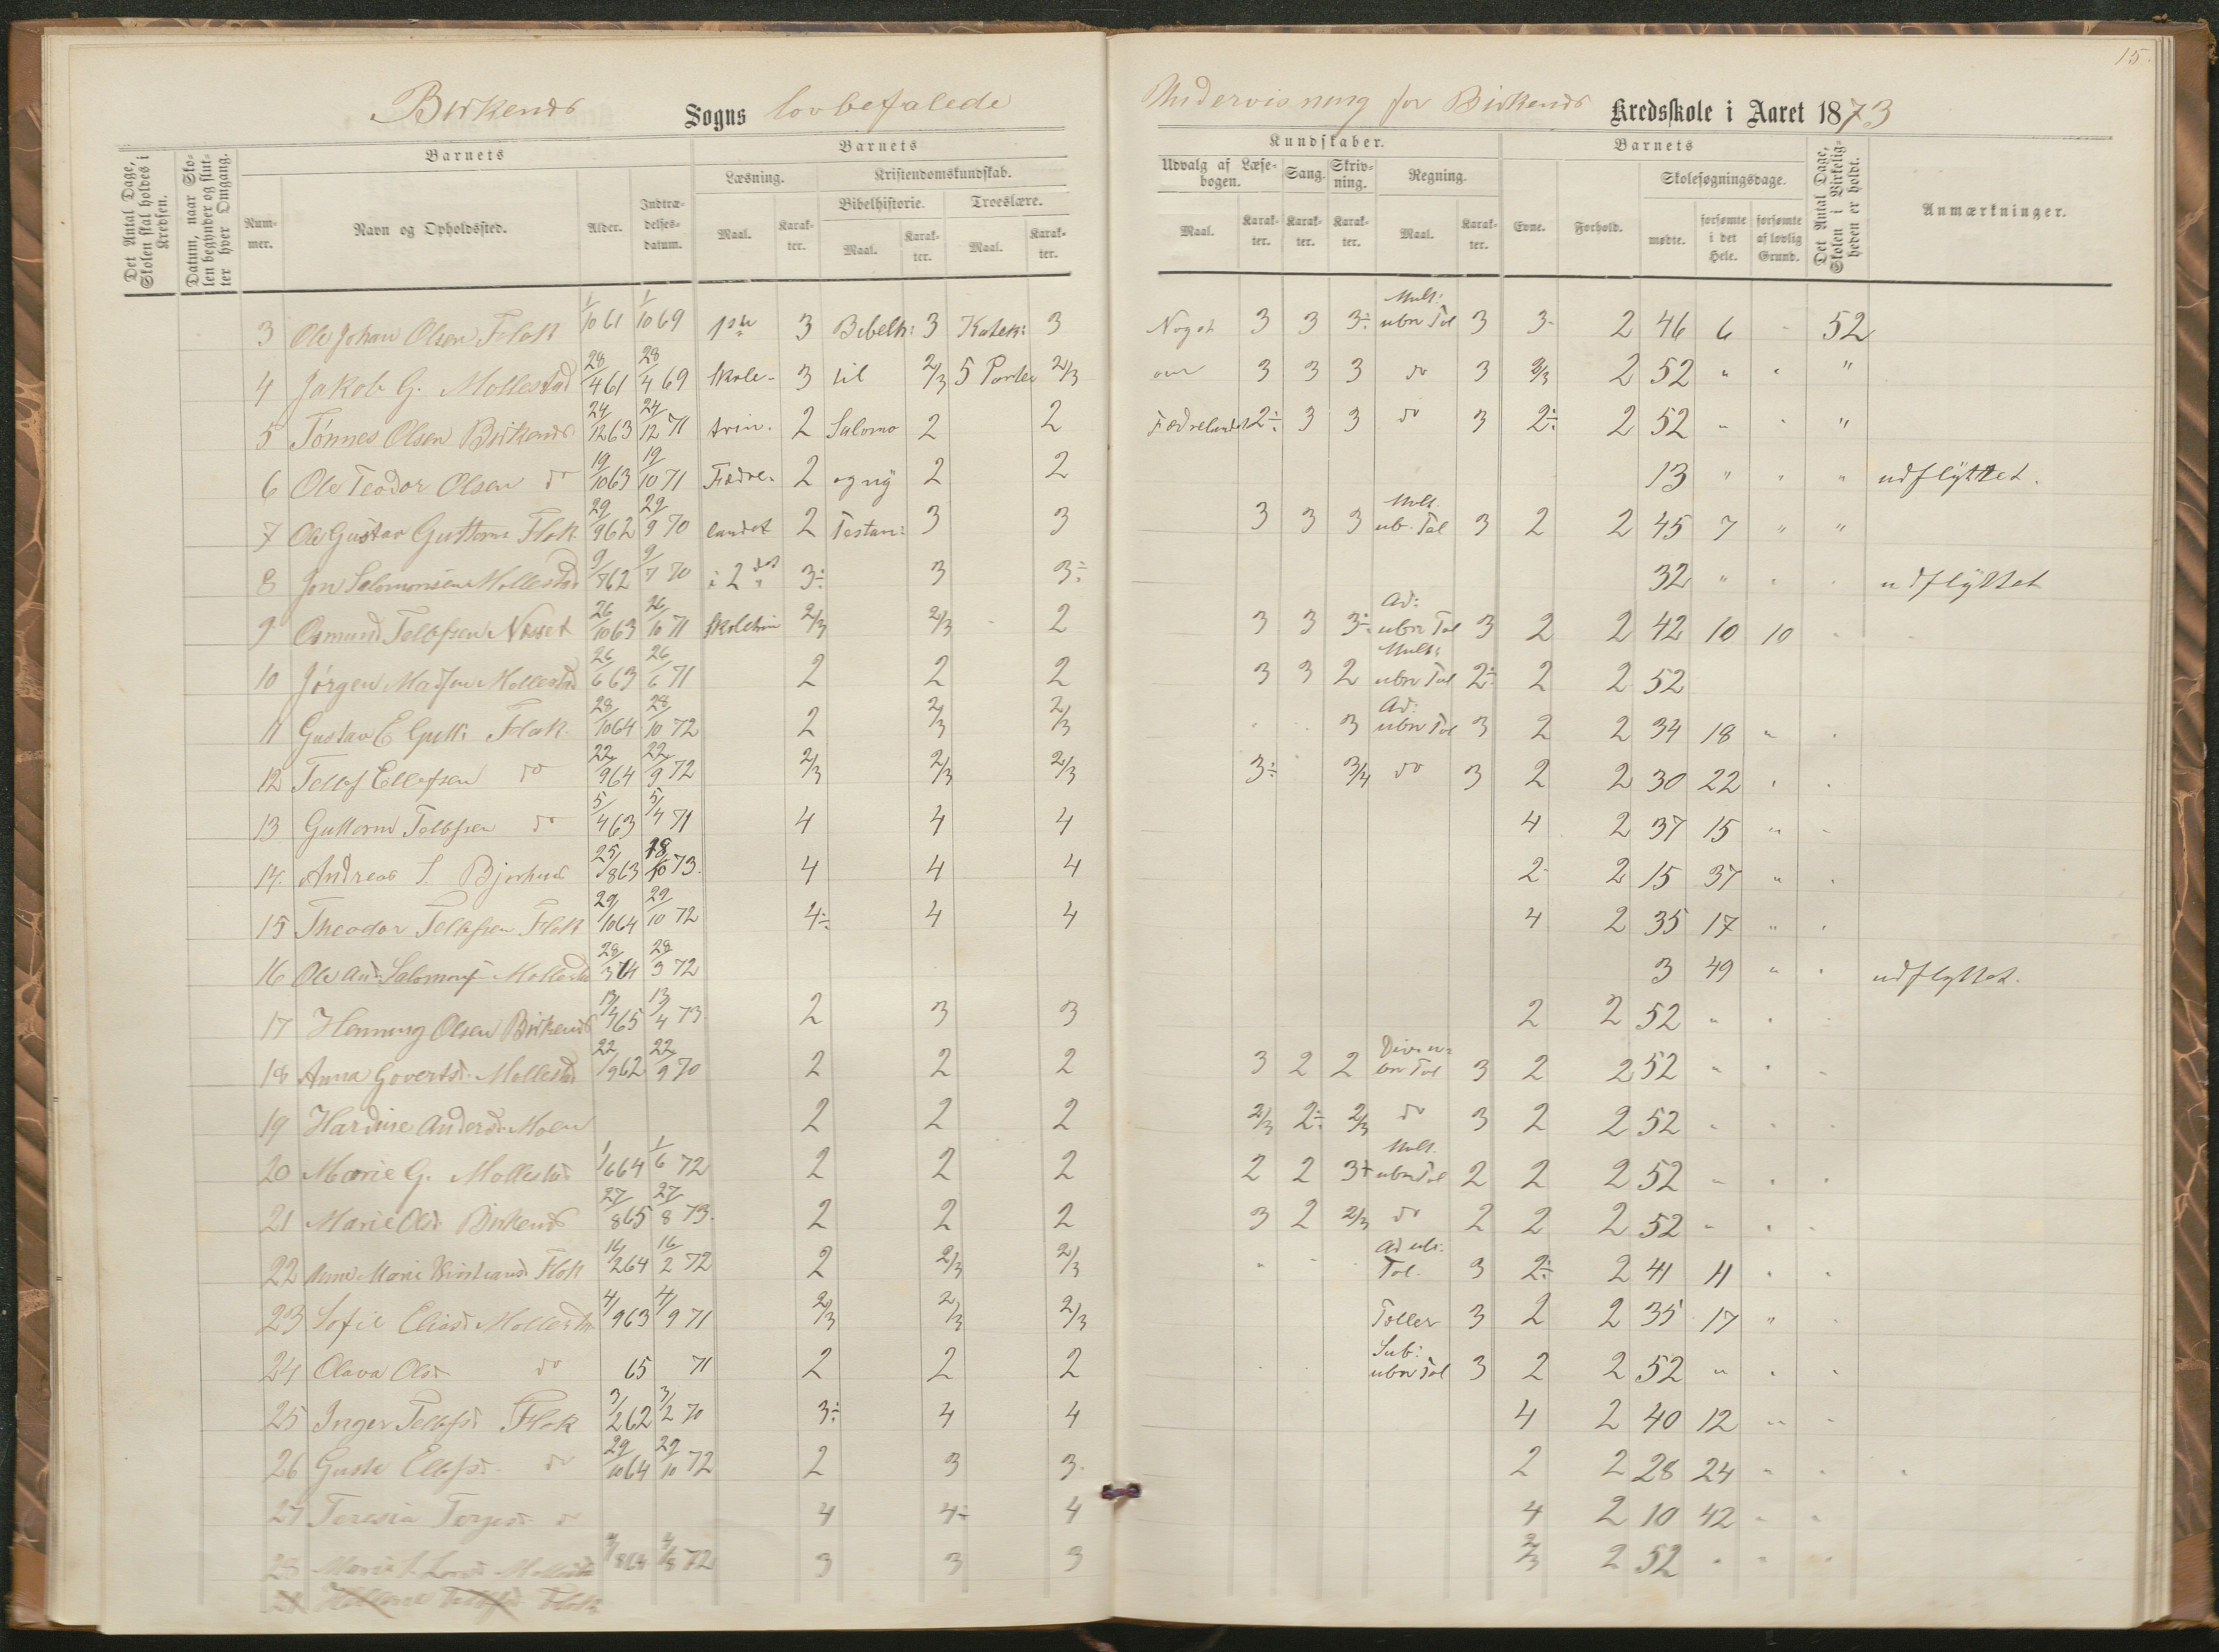 15.
Birkenes Sogns lovbefalede
Undervisning for Birkenes Kredsskole i Aaret 1873
Det Antal Dage, Skolen skal holdes i Kredsen.
Datum, naar Skolen begynder og slutter hver Omgang.
Barnets
Nummer.
Navn og Opholdssted.
Alder.
Indtrædelses-datum.
Barnets
Læsning.
Maal.
Karakter.
Kristendomskundskab.
Bibelhistorie.
Maal.
Karakter.
Troeslære.
Maal.
Karakter.
Kundskaber.
Udvalg af Læsebogen.
Maal.
Karakter.
Sang.
Karakter.
Skrivning.
Karakter.
Regning.
Maal.
Karakter.
Barnets
Evne.
Forhold.
Skolesøgningsdage.
mødte.
forsømte i det Hele.
forsømte af lovlig Grund.
Det Antal Dage, Skolen i Virkeligheden er holdt.
Anmærkninger.
3 Ole Johan Olsen Flak 1/10 61 1/10 69 1ste 3 Bibelh: 3 Katek: 3 Noget 3 3 3÷ Mult: ubn Tal 3 3- 2 46 6 " 52
4 Jakob G. Mollestad 28/4 61 28/4 69 Skole- 3 til 2/3 5 Parten 2/3 om 3 3 3 do 3 2/3 2 52 " " "
5 Tönnes Olsen Birkenes 24/12 63 24/12 71 trin. 2 Salomo 2 2 Fædrelandet 2÷ 3 3 do 3 2÷ 2 52 " " "
6 Ole Teodor Olsen do 19/10 63 19/10 71 Fædre- 2 og ny 2 2 13 " " " udflyttet.
7 Ole Gustav Guttorms Flak 29/9 62 29/9 70 landet 2 Testam: 3 3 3 3 3 Mult. ub. Tal 3 2 2 45 7 " "
8 Jon Salomonsen Mollestad 9/7 62 9/7 70 i 2det 3÷ 3 3÷ 32 " " " udflyttet
9 Osmund Tellefsen Neset 26/10 63 26/10 71 Skoletrin 2/3 2/3 2 3 3 3÷ Ad: ubn Tal 3 2 2 42 10 10 "
10 Jørgen Madsen Mollestad 26/6 63 26/6 71 2 2 2 3 3 2 Mult: ubn Tal 2÷ 2 2 52
11 Gustav E Gutt: Flak 28/10 64 28/10 72 2 2/3 2/3 " " 3 Ad: ubn Tal 3 2 2 34 18 " "
12 Tellef Ellefsen do 22/9 64 22/9 72 2/3 2/3 2/3 3÷ 3/4 do 3 2 2 30 22 " "
13 Guttorm Tellefsen do 5/4 63 5/4 71 4 4 4 4 2 37 15 " "
14. Andreas S. Bjorhus 25/8 63 18/10 73. 4 4 4 2- 2 15 37 " "
15 Theodor Tellefsen Flak 29/10 64 29/10 72 4÷ 4 4 4 2 35 17 " "
16 Ole And: Salomons Mollestad 28/3 64 28/3 72 3 49 " " udflyttet.
17 Henning Olsen Birkenes 13/4 65 13/4 73 2 3 3 2 2 52 " " "
18 Anna Govertsd. Mollestad 22/9 62 22/9 70 2 2 2 3 2 2 Div: u= bn Tal 3 2 2 52 " " "
19 Hardine Andersd. Moen 2 2 2 2/3 2÷ 2/3 do 3 2 2 52 " " "
20 Marie G. Mollestad 1/6 64 1/6 72 2 2 2 2 2 3+ Mult. ubn Tal 2 2 2 52 " " "
21 Marie Olsd. Birkenes 27/8 65 27/8 73. 2 2 2 3 2 2/3 do 2 2 2 52 " " "
22 Anne Marie Kristiansd. Flak 16/2 64 16/2 72 2 2/3 2/3 " " " Ad ub: Tal. 3 2÷ 2 41 11 " "
23 Sofie Eliasd. Mollestad 4/9 63 4/9 71 2/3 2/3 2/3 Toller 3 2 2 35 17 " "
24 Olava Olsd. do 65 71 2 2 2 Sub: ubn Tal 3 2 2 52 " " "
25 Inger Tellefsd. Flak 3/2 62 3/2 70 3÷ 4 4 4 2 40 12 " "
26 Gusta Ellefsd. do 29/10 64 29/10 72 2 3 3. 2 2 28 24 " " "
27 Teresia Terjesd. do 4 4÷ 4 4 2 10 42 " "
28 Marie Mollestad 4/8 64 4/8 72 3 3 3 2/3 2 52 " " "
29 Tellefsd Flak